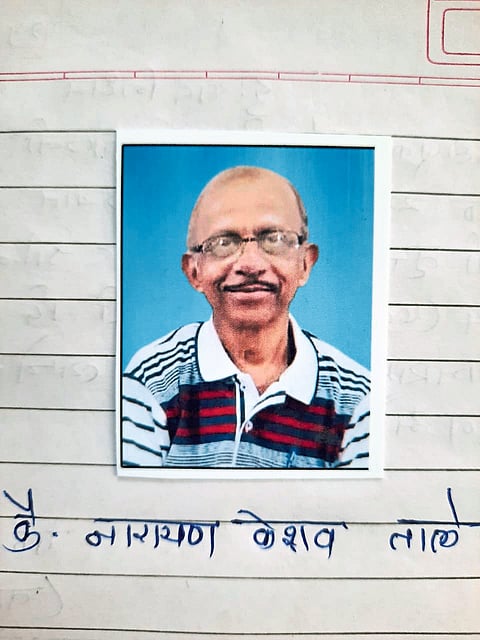 कै. नारायण केशव ताले